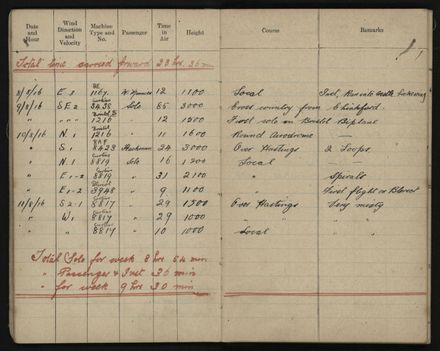 Date and Hour Wind Direction and Velocity Machine Type and No. Passenger Time in Air Height Course Remarks
Total time carried forward 28 hrs. 36 m
8/8/16 E. 2 1167 12 1100 Local
9/8/16 S.E. 2 Curtiss 3435 Solo 55 3000 Cross country from Chingford.
" " " " Bristol 1216 " 12 1500 First solo on Bristol Biplane
10/8/16 N. 1 Bristol 1216 " 11 1600 Round Aerodrome —
" S. 1 8423 24 3000 Over Hastings 2 Loops
" N. 1 Curtiss 8819 Solo 16 1200 Local —
" E 1-2 Curtiss 8819 " 31 2100 " Spirals
" E 1-2 3948 " 9 1100 " First flight on Bleriot
11/8/16 S 2-1 Curtiss 8817 " 29 1300 Over Hastings Very misty
" W 1 Curtiss 8817 " 29 1000 " " "
" " Curtiss 8817 " 10 1000 Local " "
Total Solo for week 8 hrs 54 min
" Passenger & Inst 36 min
" for week 9 hrs 30 min